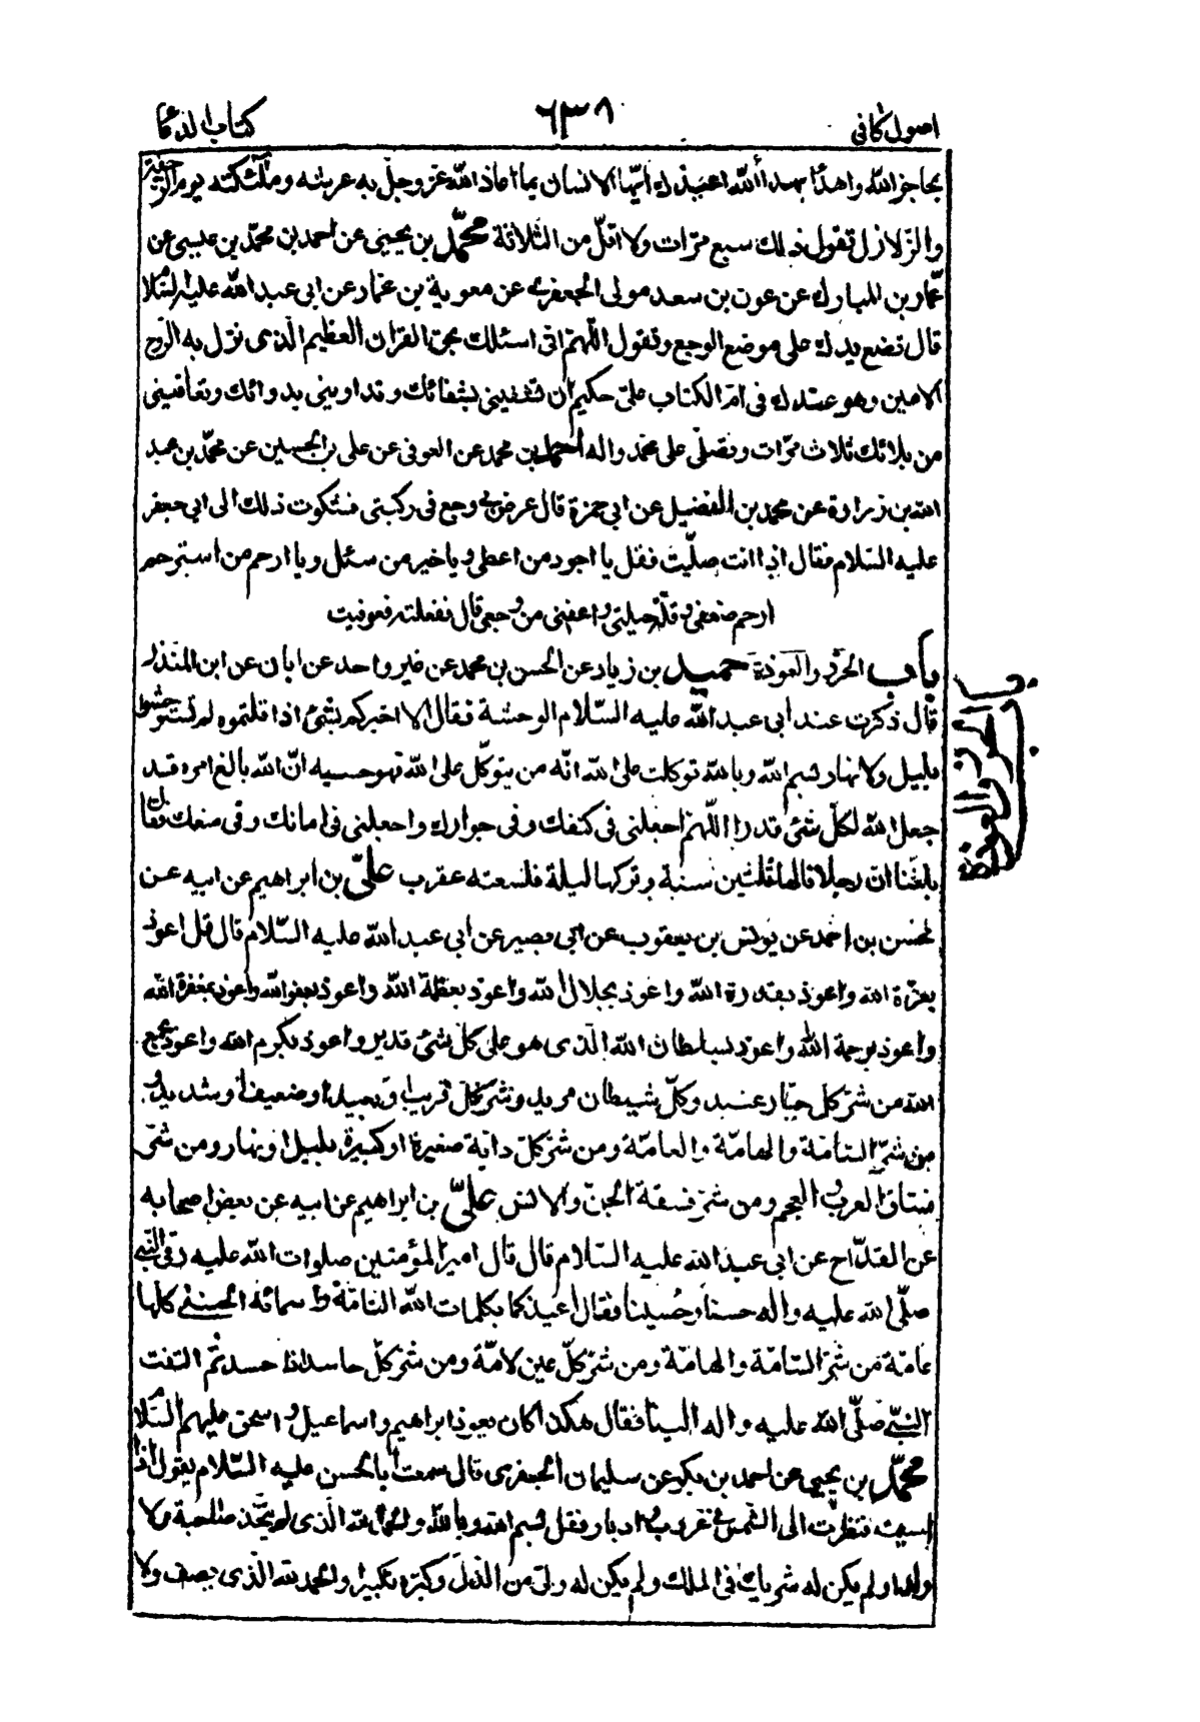 اصول كافى ٦٣٨ كتاب الدعا
الله واهدأ بهدأ الله اعيذك ايّها الانسان بما اعاذ الله عزّ وجلّ به عرشه وملائكته يوم الرجفة
والزّلازل تقول ذلك سبع مرّات ولا اقلّ من الثّلاثة محمّد بن يحيى عن احمد بن محمّد بن عيسى عن
عمّار بن المبارك عن عون بن سعد مولى الجعفرى عن معوية بن عمّار عن ابى عبد الله عليه السّلا
قال تضع يدك على موضع الوجع وتقول اللّهمّ انّى اسئلك بحقّ القران العظيم الّذى نزل به الرّوح
الامين وهو عندك فى امّ الكتاب علىّ حكيم ان تشفينى بشفائك وتداوينى بدوائك وتعافينى
من بلائك ثلاث مرّات وتصلّى على محمّد واله احمد بن محمد عن العوفى عن على بن الحسين عن محمّد بن عبد
الله بن زرارة عن محمد بن الفضيل عن ابى حمزة قال عرض بى وجع فى ركبتى فشكوت ذلك الى ابى جعفر
عليه السّلام فقال اذا انت صلّيت فقل يا اجود من اعطى ويا خير من سئل ويا ارحم من استرحم
ارحم ضعفى وقلّة حيلتى واعفنى من وجعى قال ففعلته فعوفيت
باب الحرز والعوذة حميد بن زياد عن الحسن بن محمد عن غير واحد عن ابان عن ابن المنذر
قال ذكرت عند ابى عبد الله عليه السّلام الوحشة فقال الا اخبركم بشئ اذا قلتموه لم تستوحشوا
بليل ولا نهار بسم الله وبالله توكلت على الله انّه من يتوكّل على الله فهو حسبه انّ الله بالغ امره قد
جعل الله لكلّ شئ قدرا اللّهمّ اجعلنى فى كنفك وفى جوارك واجعلنى فى امانك وفى منعك فقال
بلغنا انّ رجلا قالها ثلثين سنة وتركها ليلة فلسعته عقرب علىّ بن ابراهيم عن ابيه عن
الحسن بن احمد عن يونس بن يعقوب عن ابى بصير عن ابى عبد الله عليه السّلام قال قل اعوذ
بعزّة الله واعوذ بقدرة الله واعوذ بجلال الله واعوذ بعظمة الله واعوذ بعفو الله واعوذ بمغفرة الله
واعوذ برحمة الله واعوذ بسلطان الله الّذى هو على كلّ شئ قدير واعوذ بكرم الله واعوذ بجمع
الله من شرّ كلّ جبّار عنيد وكلّ شيطان مريد وشرّ كلّ قريب او بعيد او ضعيف او شديد و
من شرّ السّامّة والهامّة والعامّة ومن شرّ كلّ دابّة صغيرة او كبيرة بليل او نهار ومن شرّ
فسّاق العرب والعجم ومن شرّ فسقة الجنّ والانس علىّ بن ابراهيم عن ابيه عن بعض اصحابه
عن القدّاح عن ابى عبد الله عليه السّلام قال قال امير المؤمنين صلوات الله عليه رقى النّبى
صلّى الله عليه واله حسنا وحُسينا فقال اعيذكما بكلمات الله التامّة واسمائه الحسنى كلّها
عامّة من شرّ السّامّة والهامّة ومن شرّ كلّ عين لامّة ومن شرّ كلّ حاسد اذا حسد ثمّ التفت
النّبىّ صلّى الله عليه واله الينا فقال هكذا كان يعوذ ابراهيم واسماعيل واسحق عليهم السّلام
محمّد بن يحيى عن احمد بن بكر عن سليمان الجعفرى قال سمعت ابا الحسن عليه السّلام يقول اذا
امسيت فنظرت الى الشّمس فى غروب وادبار فقل بسم الله وبالله والحمد لله الّذى لم يتّخذ صاحبة ولا
ولدا ولم يكن له شريك فى الملك ولم يكن له ولىّ من الذّلّ وكبّره تكبيرا والحمد لله الّذى يصف ولا
باب الحرز والعوذة